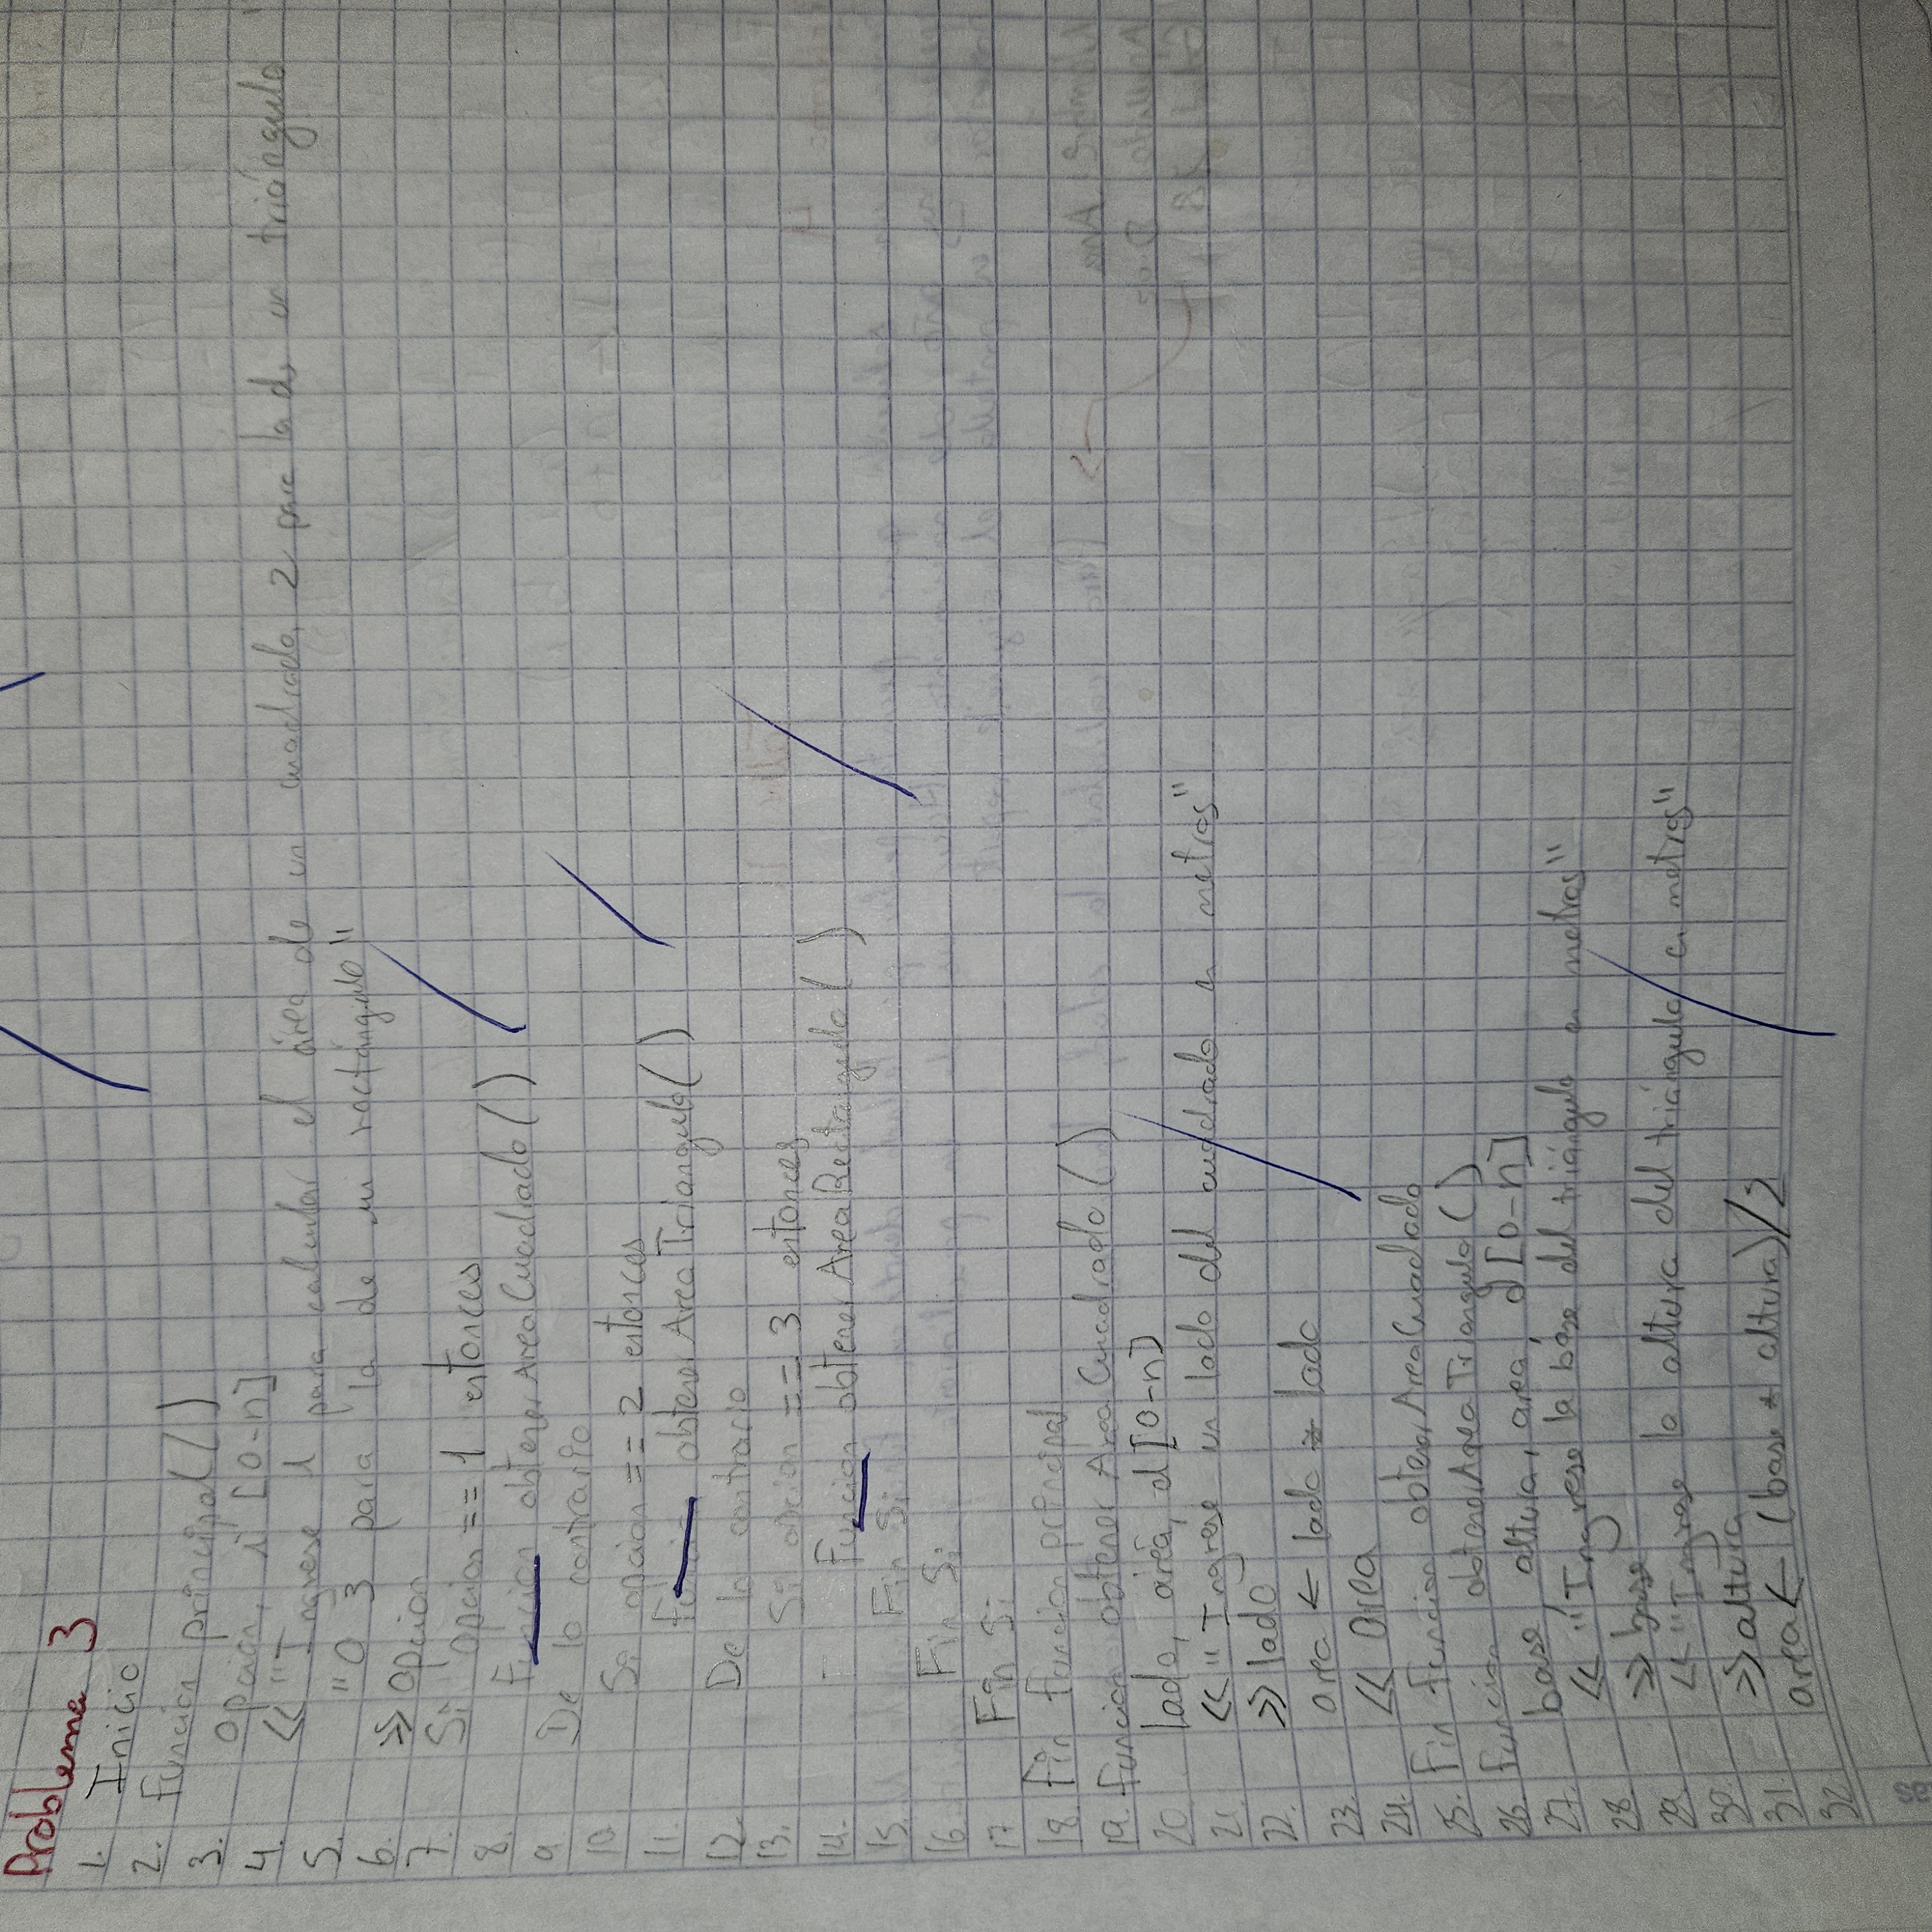 Problema 3
1. Inicio
2. Funcion principal()
3. opcion, i [0-n]
4. << "Ingrese 1 para calcular el área de un cuadrado, 2 para la de un triángulo
5. "O 3 para la de un rectángulo"
6. >> opcion
7. Si opcion == 1 entonces
8. Funcion obtenerAreaCuadrado()
9. De lo contrario
10. Si opcion == 2 entonces
11. Funcion obtenerAreaTriangulo()
12. De lo contrario
13. Si opcion == 3 entonces
14. Funcion obtenerAreaRectangulo()
15. Fin Si
16. Fin Si
17. Fin Si
18. Fin Funcion principal
19. Funcion obtenerAreaCuadrado()
20. lado, area, d [0-n]
21. << "Ingrese un lado del cuadrado en metros"
22. >> lado
23. area ← lado * lado
24. << area
25. Fin Funcion obtenerAreaCuadrado
26. Funcion obtenerAreaTriangulo()
27. base, altura, area, d [0-n]
28. << "Ingrese la base del triángulo en metros"
29. >> base
30. << "Ingrese la altura del triángulo en metros"
31. >> altura
32. area ← (base * altura)/2
as